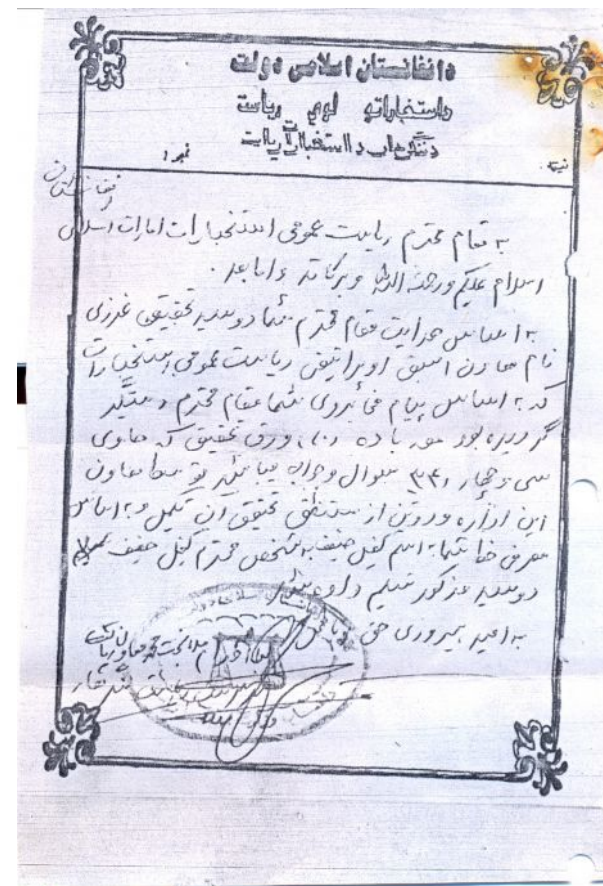 دافغانستان اسلامی دولت
داستخباراتو لوی ریاست
دننگرهار داستخباراتو ریاست
نمبر:
نیټه
افغانستان
به مقام محترم ریاست عمومی استخبارات امارات اسلامی
اسلام علیکم ورحمة الله وبرکاته واما بعد.
به اساس هدایت مقام محترم شما دوسیه تحقیقی غرزی
نام معاون اسبق اوپراتیفی ریاست عمومی استخبارات
که به اساس پیام شما مقام محترم دستگیر
گردیده بود مورد ورق تحقیق که حاوی
سی و چهار ۳۴ سوال وجواب میباشد توسط معاون
این اداره و از تحقیق آن تکمیل و به اساس
معرفی خط شما به اسم کفیل حنیف به شخص محترم کفیل حنیف
دوسیه مذکور تسلیم داده شد
به امید پیروزی حق